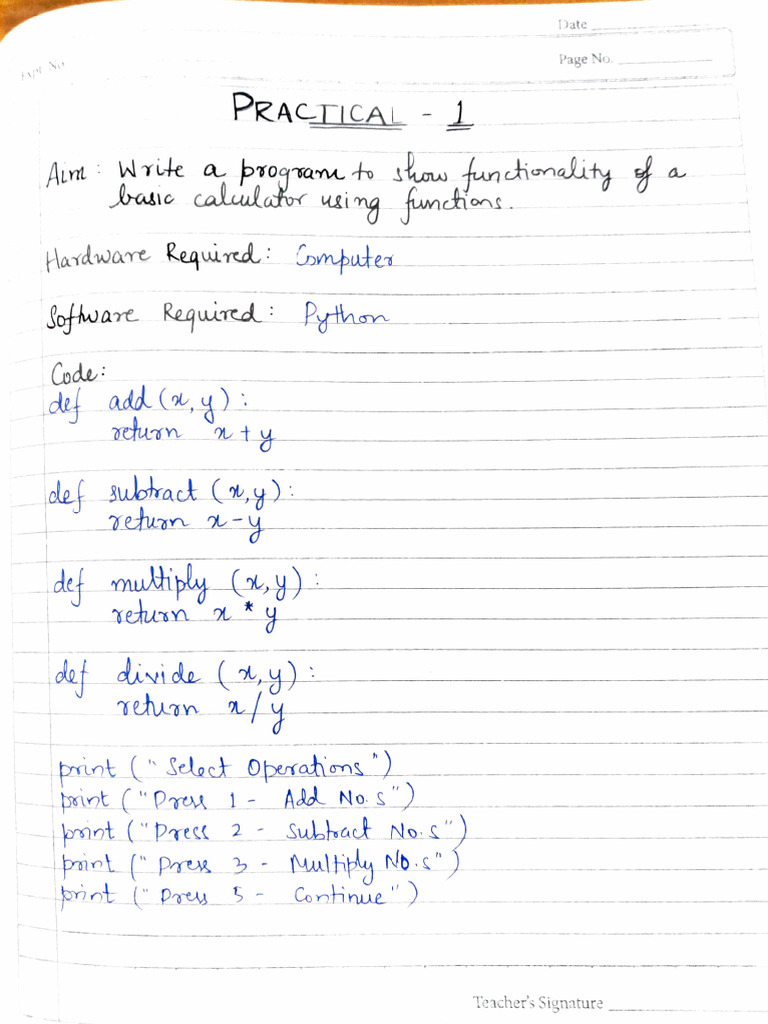 Date
Expt. No.
Page No.
PRACTICAL - 1
Aim: Write a program to show functionality of a
basic calculator using functions.
Hardware Required: Computer
Software Required: Python
Code:
def add (x, y) :
return x + y
def subtract (x, y) :
return x - y
def multiply (x, y) :
return x * y
def divide (x, y) :
return x / y
print ("Select Operations")
print ("Press 1 - Add No.s")
print ("Press 2 - Subtract No.s")
print ("Press 3 - Multiply No.s")
print ("Press 5 - Continue")
Teacher's Signature